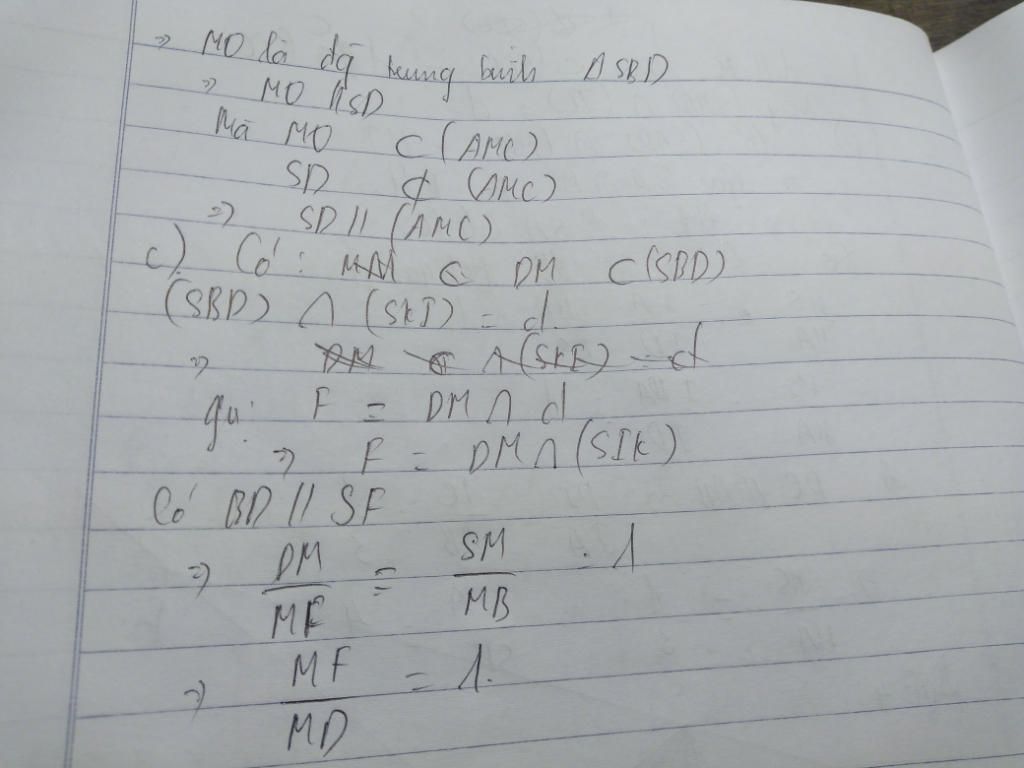 ⇒ MO là đg̃ trung bình ΔSBD
⇒ MO // SD
Mà MO ⊂ (AMC)
SD ⊄ (AMC)
⇒ SD // (AMC)
c) Có: DM ⊂ (SBD)
(SBD) ∩ (SKI) = d.
⇒ ∩ (SKE) = d
gọi F = DM ∩ d
⇒ F = DM ∩ (SIK)
Có BD // SF
⇒ DM/MF = SM/MB = 1
⇒ MF/MD = 1.